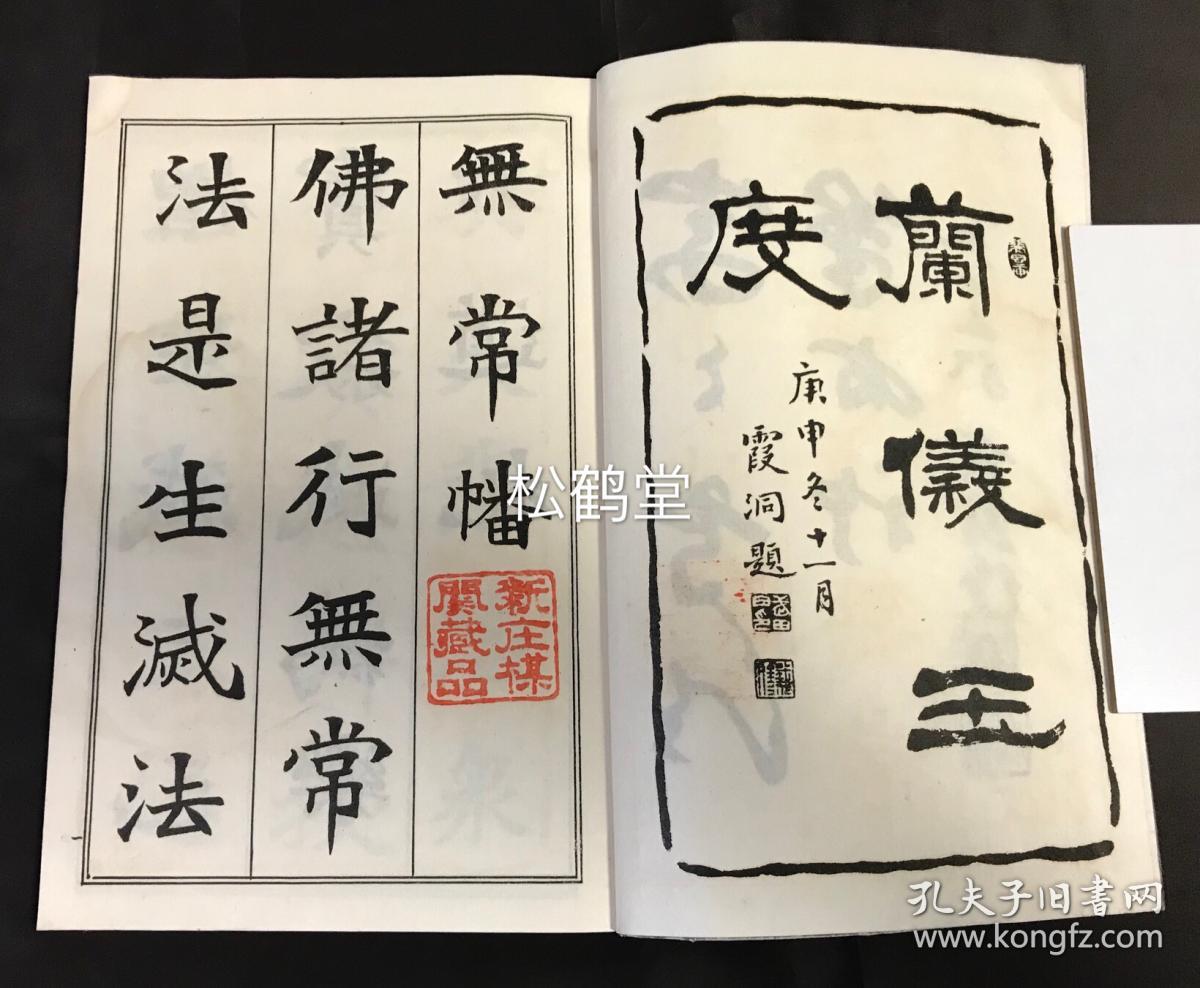 蘭儀玉
度
庚申冬十一月
霞洞題
無常幡
佛諸行無常
法是生滅法
新庄楳
関藏品
松鹤堂
孔夫子旧书网
www.kongfz.com